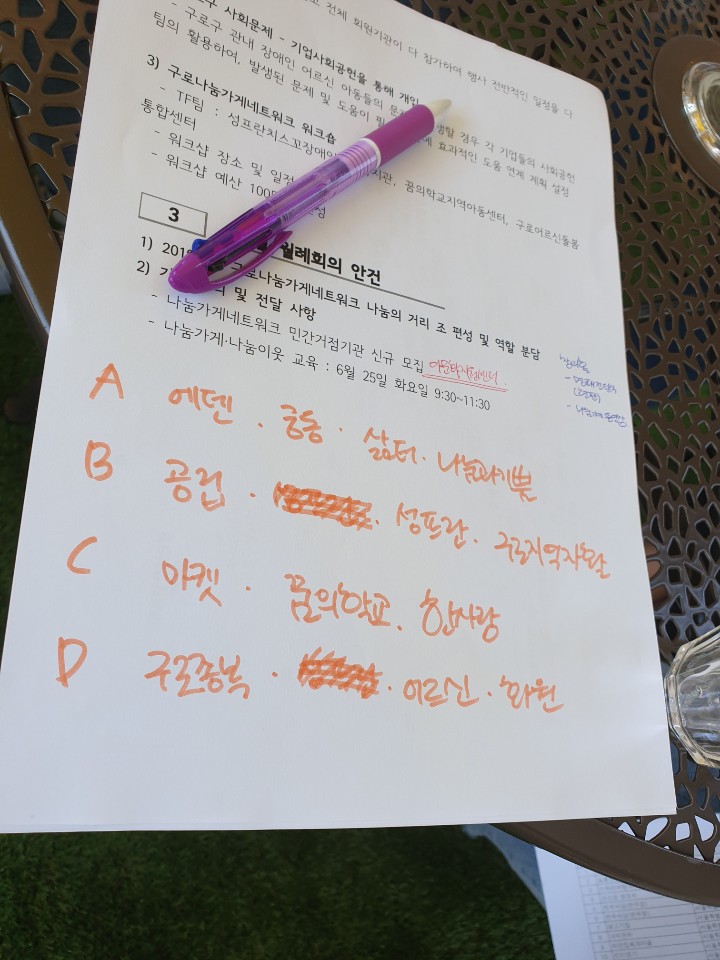 고 전체 회원기관이 다 참가하여 행사 전반적인 일정을 더
사회문제 - 기업사회공헌을 통해 개입
- 구로구 관내 장애인 어르신 아동들의 문 생할 경우 각 기업들의 사회공헌
팀의 활용하여, 발생된 문제 및 도움이 필 에 효과적인 도움 연계 계획 설정
3) 구로나눔가게네트워크 워크숍
- TF팀 : 성프란치스꼬장애인 지관, 꿈의학교지역아동센터, 구로어르신돌봄
통합센터
- 워크샵 장소 및 일정
- 워크샵 예산 100
3 월례회의 안건
1) 201 구로나눔가게네트워크 나눔의 거리 조 편성 및 역할 분담
2) 및 전달 사항
- 나눔가게네트워크 민간거점기관 신규 모집
- 나눔가게·나눔이웃 교육 : 6월 25일 화요일 9:30~11:30
A 에덴 · 궁동 · 삶터 · 나눔과기쁨
B 공립 · 성프란 · 구로지역자활
C 마켓 · 꿈의학교 · 한사랑
D 구로종복 · 어르신 · 화원